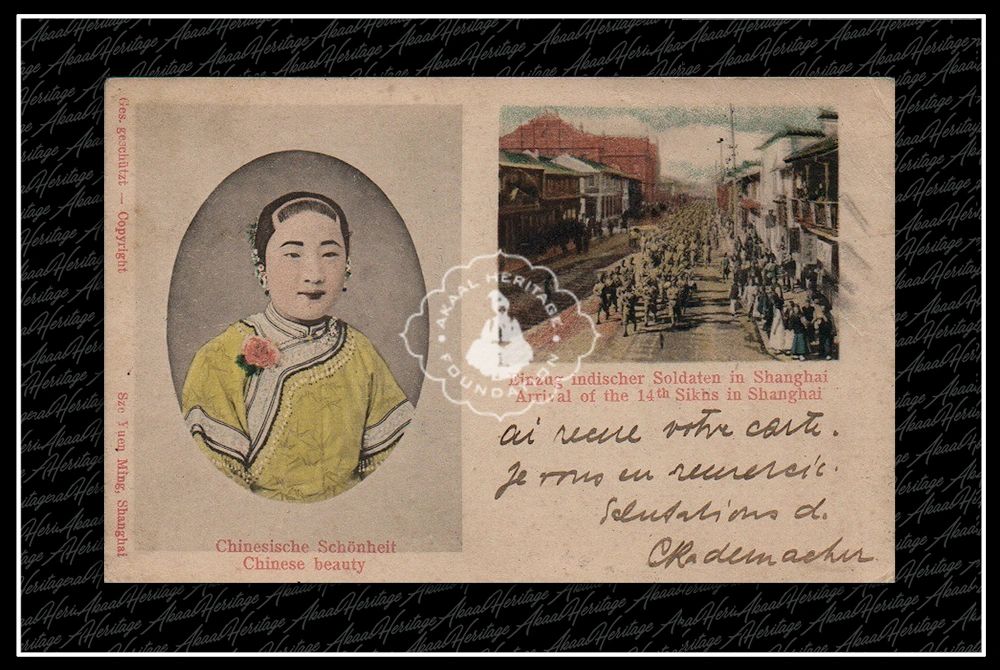 Ges. geschützt — Copyright
Sze Yuen Ming, Shanghai
Chinesische Schönheit
Chinese beauty
Einzug indischer Soldaten in Shanghai
Arrival of the 14th Sikhs in Shanghai
ai recue votre carte.
Je vous en remercie.
Salutations d.
CRademacher
AKAAL HERITAGE
FOUNDATION
Akaal Heritage